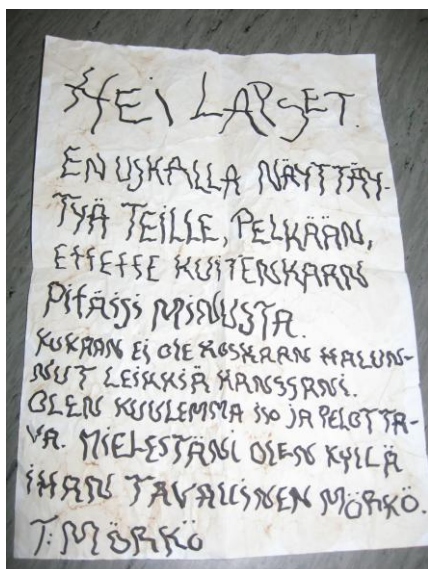 HEI LAPSET.
EN USKALLA NÄYTTÄY-
TYÄ TEILLE, PELKÄÄN,
ETTETTE KUITENKAAN
PITÄISI MINUSTA.
KUKAAN EI OLE KOSKAAN HALUN-
NUT LEIKKIÄ KANSSANI.
OLEN KUULEMMA ISO JA PELOTTA-
VA. MIELESTÄNI OLEN KYLLÄ
IHAN TAVALLINEN MÖRKÖ.
T: MÖRKÖ